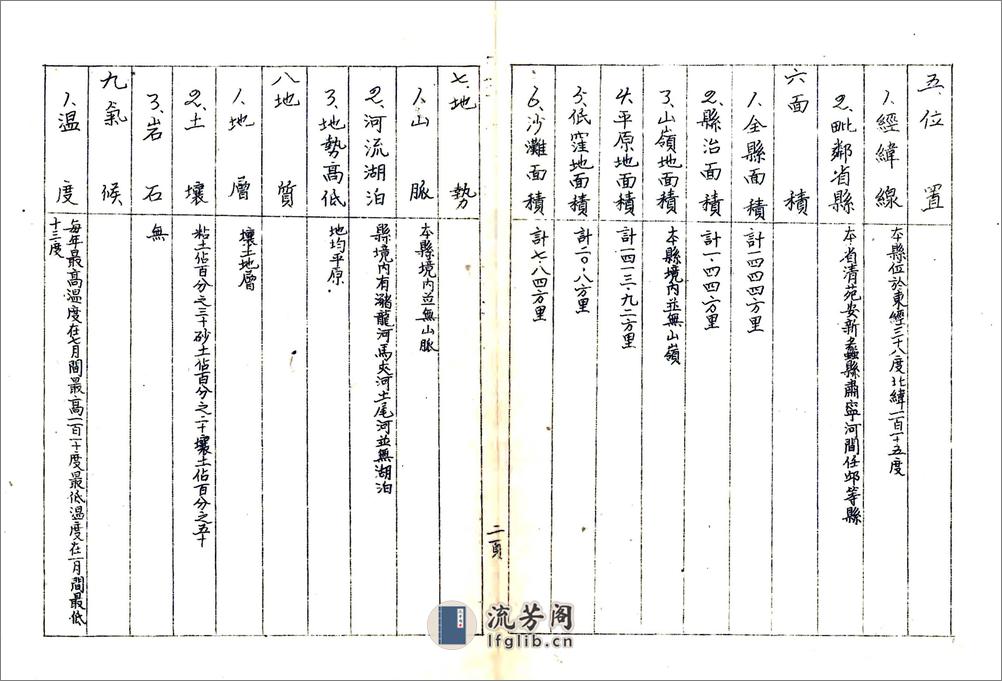 五、位置
1、經緯線 本縣位於東經三十八度北緯一百十五度
2、毗鄰省縣 本省清苑安新蠡縣肅寧河間任邱等縣
六面積
1、全縣面積 計一四四四方里
2、縣治面積 計一.四四方里
3、山嶺地面積 本縣境內並無山嶺
4、平原地面積 計一四一三.九二方里
5、低窪地面積 計二〇.八方里
6、沙灘面積 計七.八四方里
二頁
七、地勢
1、山脈 本縣境內並無山脈
2、河流湖泊 縣境內有瀦龍河馬夾河土尾河並無湖泊
3、地勢高低 地均平原.
八地質
1、地層 壤土地層
2、土壤 粘土佔百分之三十砂土佔百分之二十壤土佔百分之五十
3、岩石 無
九氣候
1、溫度 每年最高溫度在七月間最高一百一十度最低溫度在一月間最低
十三度
流芳阁
lfglib.cn